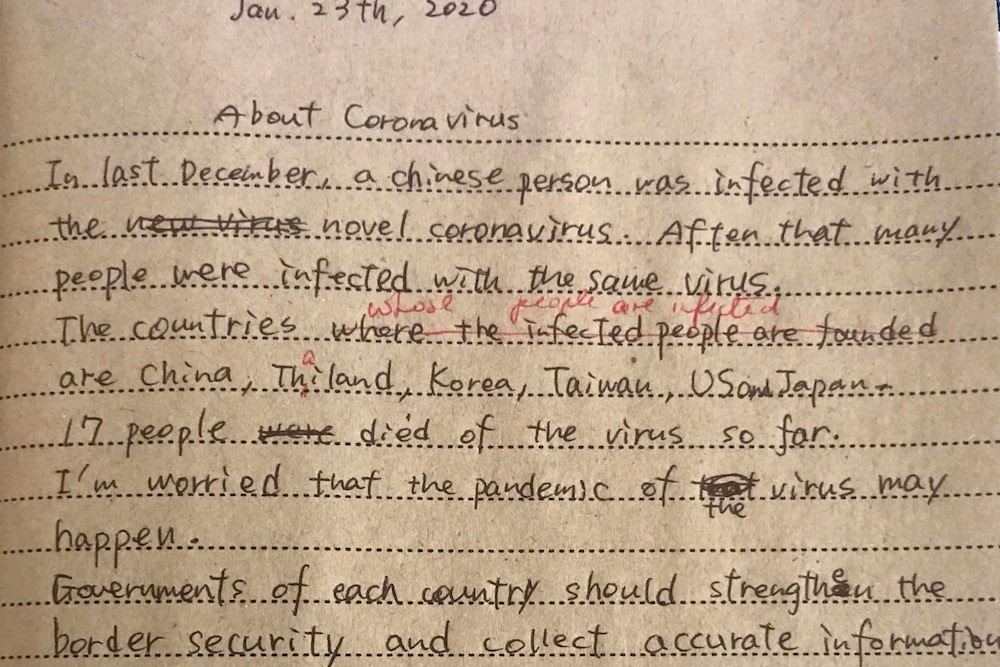 Jan. 23th, 2020
About Coronavirus
In last December, a chinese person was infected with
the new virus novel coronavirus. After that many
people were infected with the same virus.
whose people are infected
The countries where the infected people are founded
a
are China, Thiland, Korea, Taiwan, US and Japan.
17 people were died of the virus so far.
I'm worried that the pandemic of virus may
the
happen.
Governments of each country should strengthen the
border security and collect accurate information